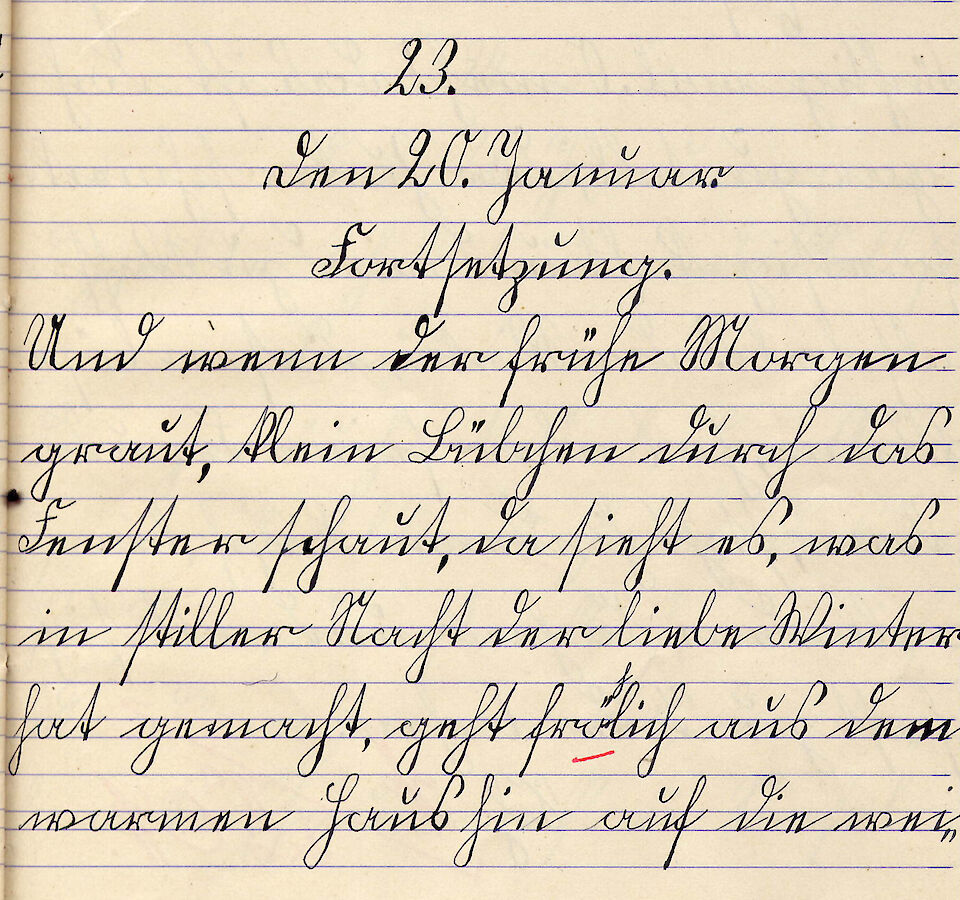 23.
Den 20. Januar.
Fortsetzung.
Und wenn der frühe Morgen
graut, klein Bübchen durch das
Fenster schaut, da sieht es, was
in stiller Nacht der liebe Winter
hat gemacht, geht fröhlich aus dem
warmen Haus hin auf die wei„